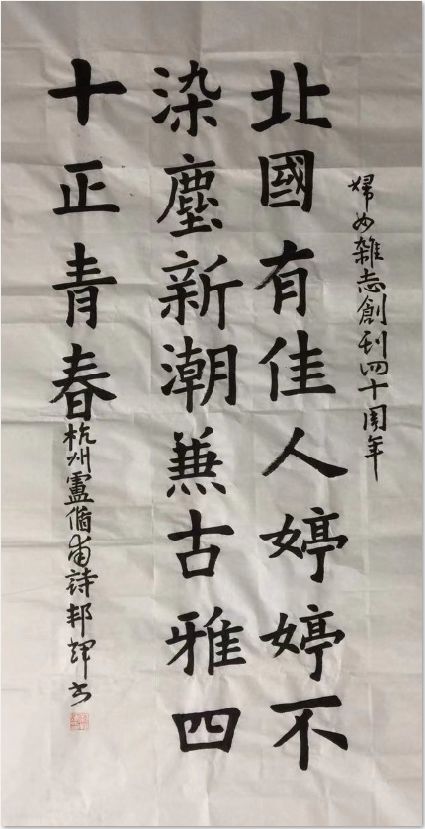 婦女雜志創刊四十周年
北國有佳人婷婷不
染塵新潮兼古雅四
十正青春
杭州盧偱甫詩邦輝书